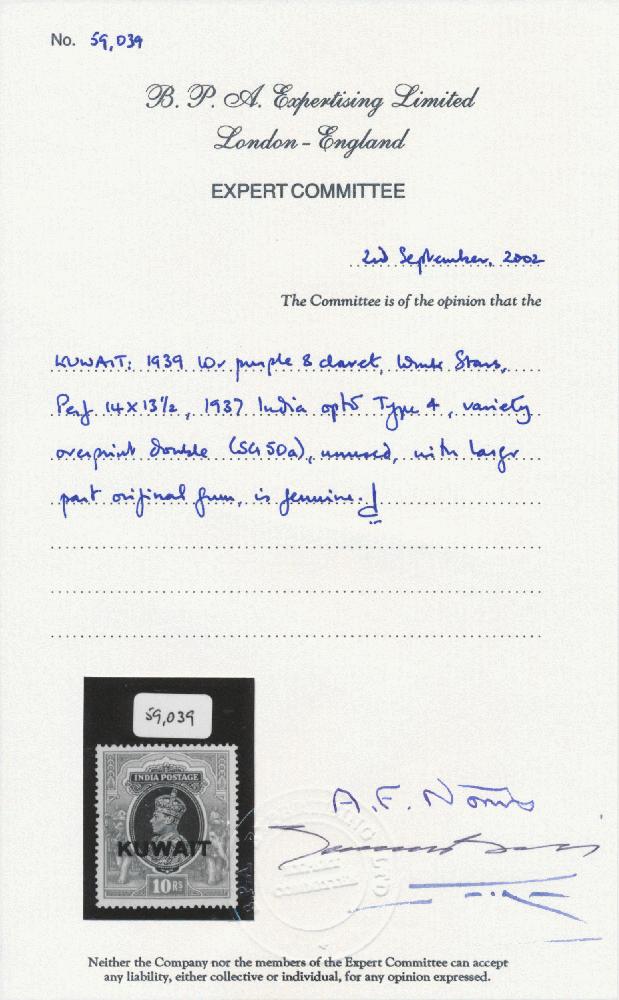 No. 59,039
B. P. A. Expertising Limited
London - England
EXPERT COMMITTEE
2nd September, 2002
The Committee is of the opinion that the
KUWAIT: 1939 10r purple & claret, Wmk Stars,
Perf 14 x 13½, 1937 India optd Type 4, variety
overprint double (SG 50a), unused, with large
part original gum, is genuine.
59,039
INDIA POSTAGE
KUWAIT
10 RS
A. F. Norris
Neither the Company nor the members of the Expert Committee can accept
any liability, either collective or individual, for any opinion expressed.